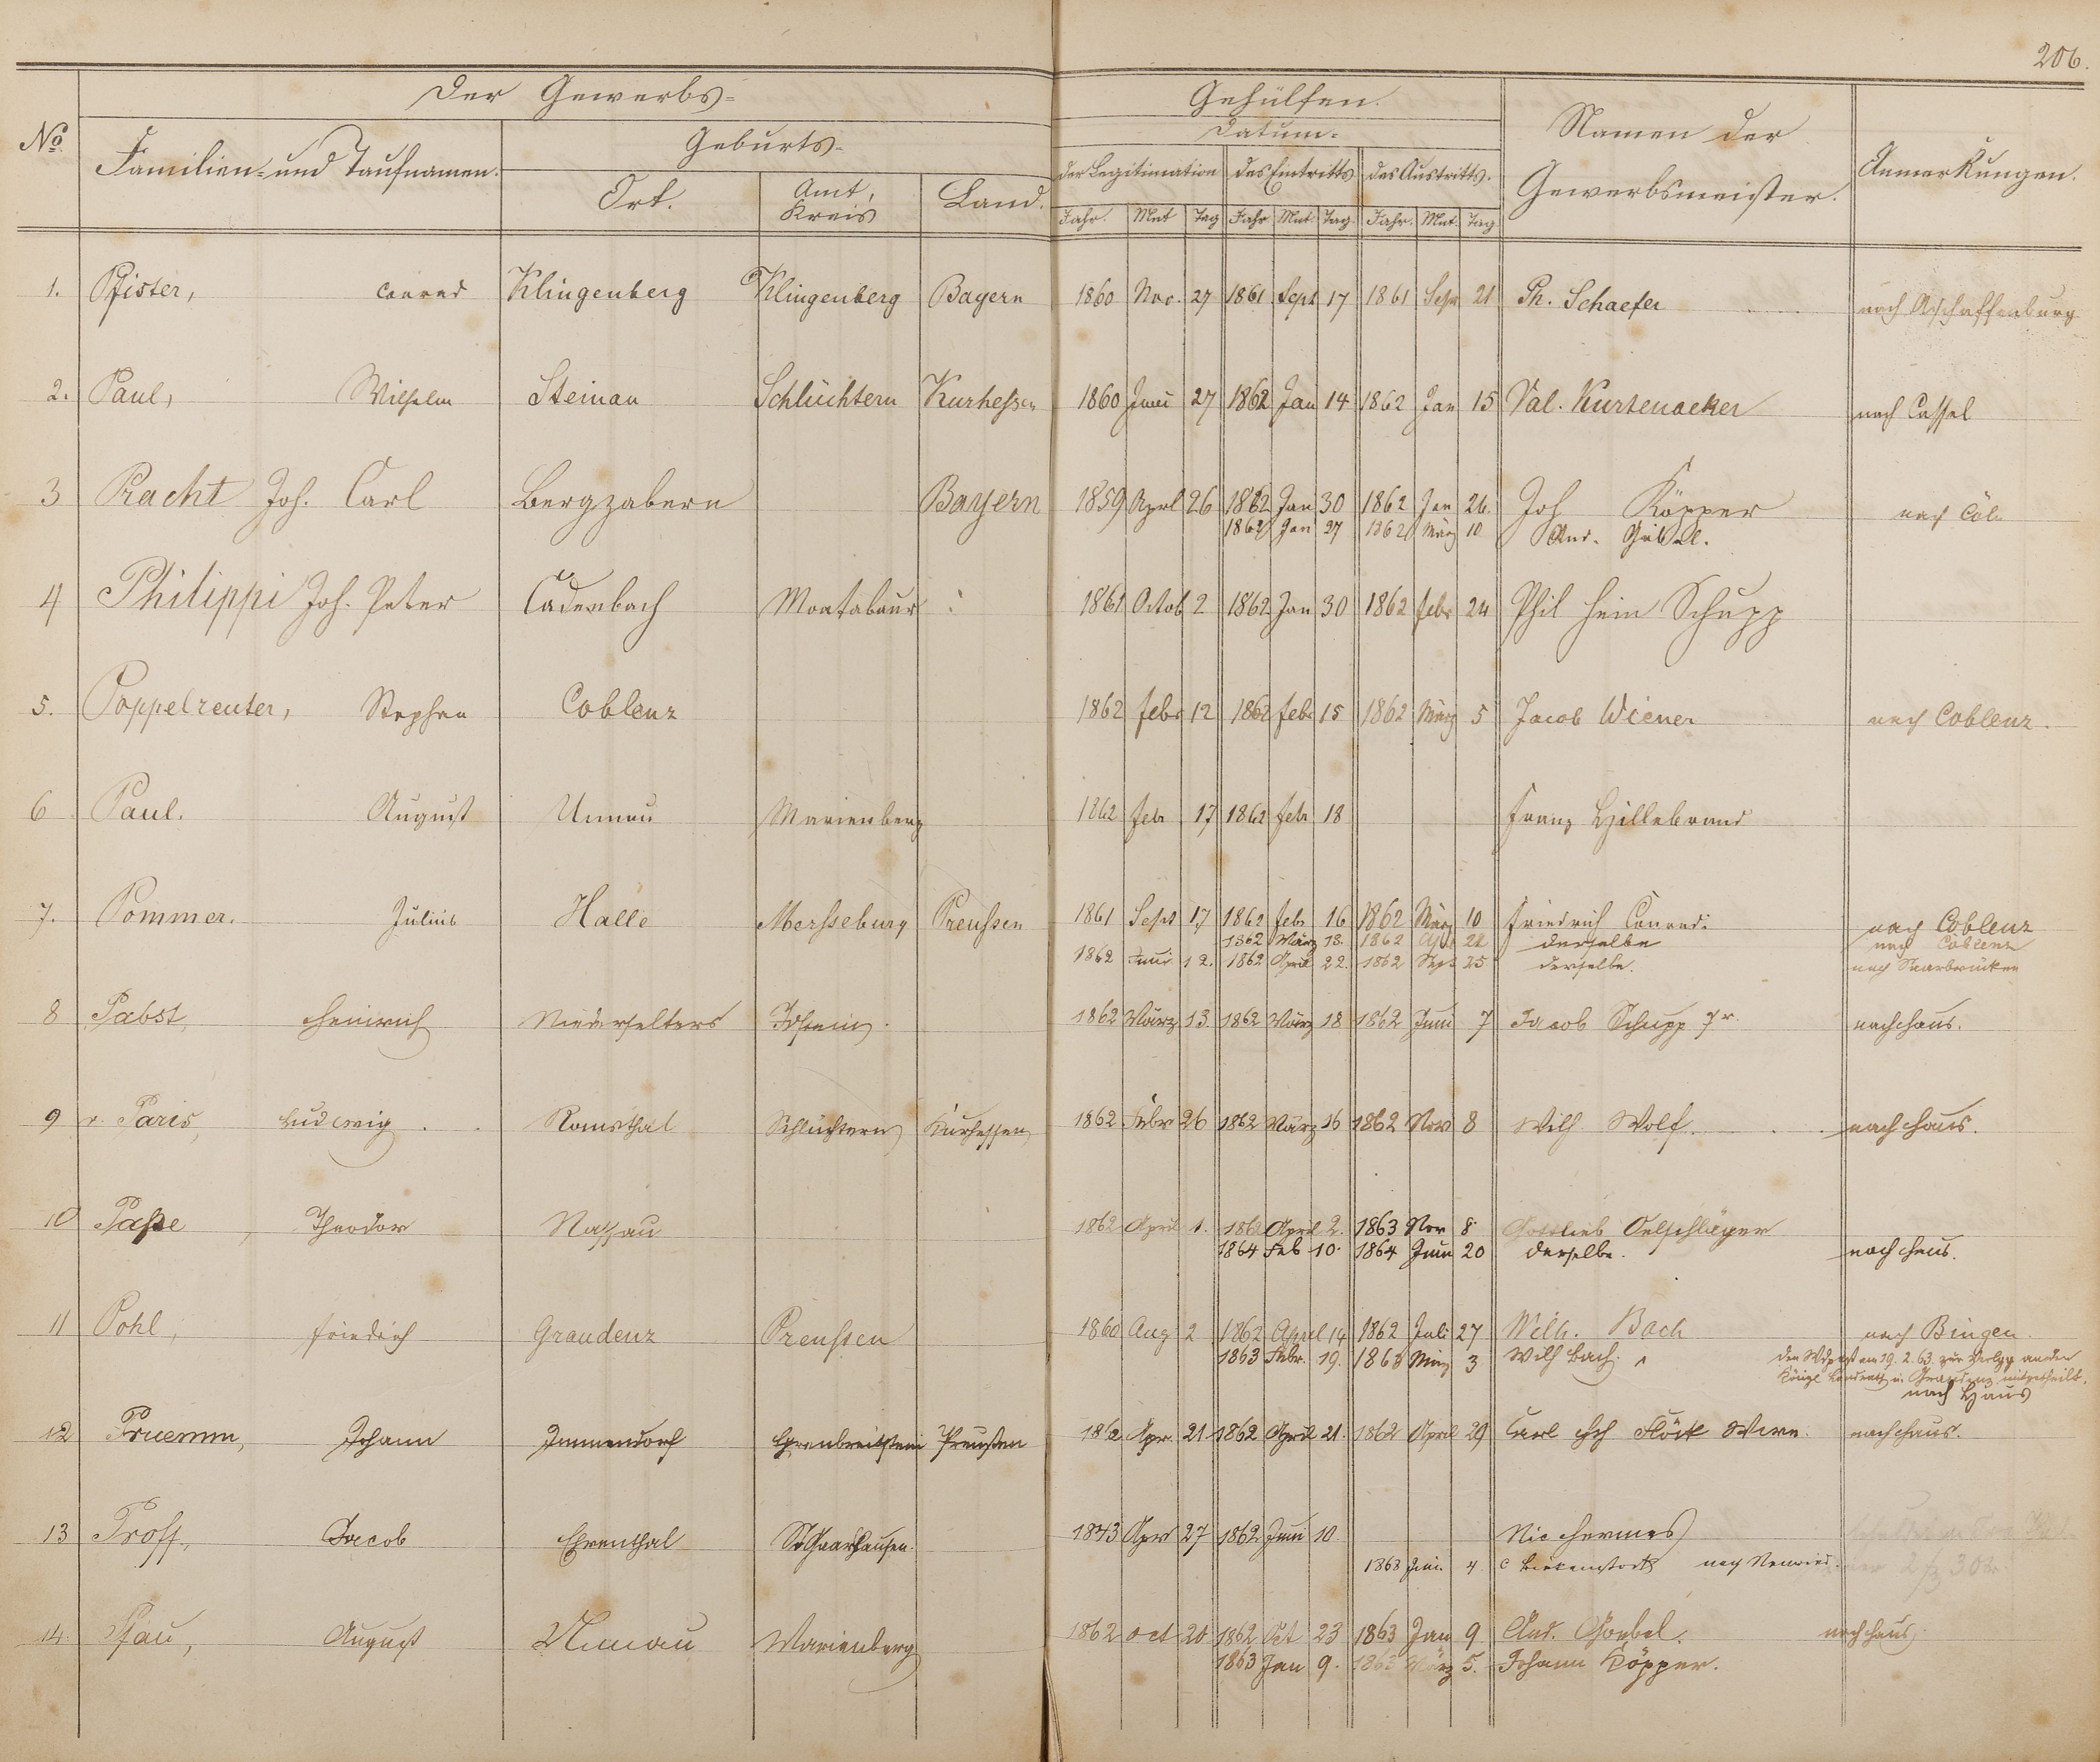 206.
Der Gewerbs-
Gehülfen.
No.
Familien- und Taufnamen.
Geburts-
Datum-
Namen der Gewerbsmeister.
Anmerkungen.
Ort.
Amt, Kreis
Land.
der Legitimation
des Eintritts
des Austritts.
Jahr. Mnt Tag Jahr Mnt Tag. Jahr. Mnt. Tag
1. Pfister, Conrad Klingenberg Klingenberg Bayern 1860 Nov. 27 1861 Sept 17 1861 Sept 21 Ph. Schaefer nach Aschaffenburg
2. Paul, Wilhelm Steinau Schlüchtern Kurhessen 1860 Juni 27 1862 Jan 14 1862 Jan 15 Val. Kurtenacker nach Cassel
3 Pracht Joh. Carl Bergzabern Bayern 1859 Aprl 26 1862 Jan 30 1862 Jan 26. Joh Köpper nach Cöln
1862 Jan 27 1862 März 10 And. Göbel.
4 Philippi Joh. Peter Cadenbach Montabaur 1861 Octob 2 1862 Jan 30 1862 febr 24 Phil Hein Schupp
5. Poppelreuter, Stephan Coblenz 1862 febr 12 1862 febr 15 1862 März 5 Jacob Wiener nach Coblenz.
6 Paul. August Unnau Marienberg 1862 febr 17 1862 febr 18 Franz Hillebrand
7. Pommer. Julius Halle Mersseburg Preussen 1861 Sept 17 1862 febr 16 1862 März 10 Friedrich Conradi nach Coblenz
1862 März 18. 1862 Apr 22 derselbe nach Coblenz
1862 Juni 12. 1862 April 22. 1862 Sept 25 derselbe. nach Saarbrücken
8 Pabst, Heinrich Niederselters Idstein. 1862 März 13. 1862 März 18 1862 Juni 7 Jacob Schupp nach Haus.
9 v. Paris, Ludewig Romsthal Schlüchtern Kurhessen 1862 Febr 26 1862 März 16 1862 Nov 8 Wilh. Wolf. nach Haus.
10 Passe, Theodor Nassau 1862 April 1. 1862 April 2. 1863 Nov 8 Gottlieb Oelschläger
1864 Feb 10. 1864 Juni 20 derselbe. nach Haus.
11 Pohl, Friedrich Graudenz Preussen 1860 Aug 2 1862 April 14 1862 Juli 27 Wilh. Bach nach Bingen.
1863 Febr. 19. 1863 März 3 Wilh Bach.
am 19. 2. 63. zur
Königl Landrath in Graudenz mitgetheilt.
nach Haus
12 Pruemm, Johann Immendorf Ehrenbreitstein Preussen 1862 Apr. 21 1862 April 21. 1862 April 29 Carl Flöck nach Haus.
13 Proff, Jacob Ehrenthal St Goarshausen. 1843 Apr 27 1862 Juni 10 Nic Hermes
1863 Juni 4 C Birkenstock nach Neuwied.
14. Pfau, August Unnau Marienberg 1862 Oct 20 1862 Oct 23 1863 Jan 9 And. Goebel. nach Haus
1863 Jan 9. 1863 März 5. Johann Köpper.